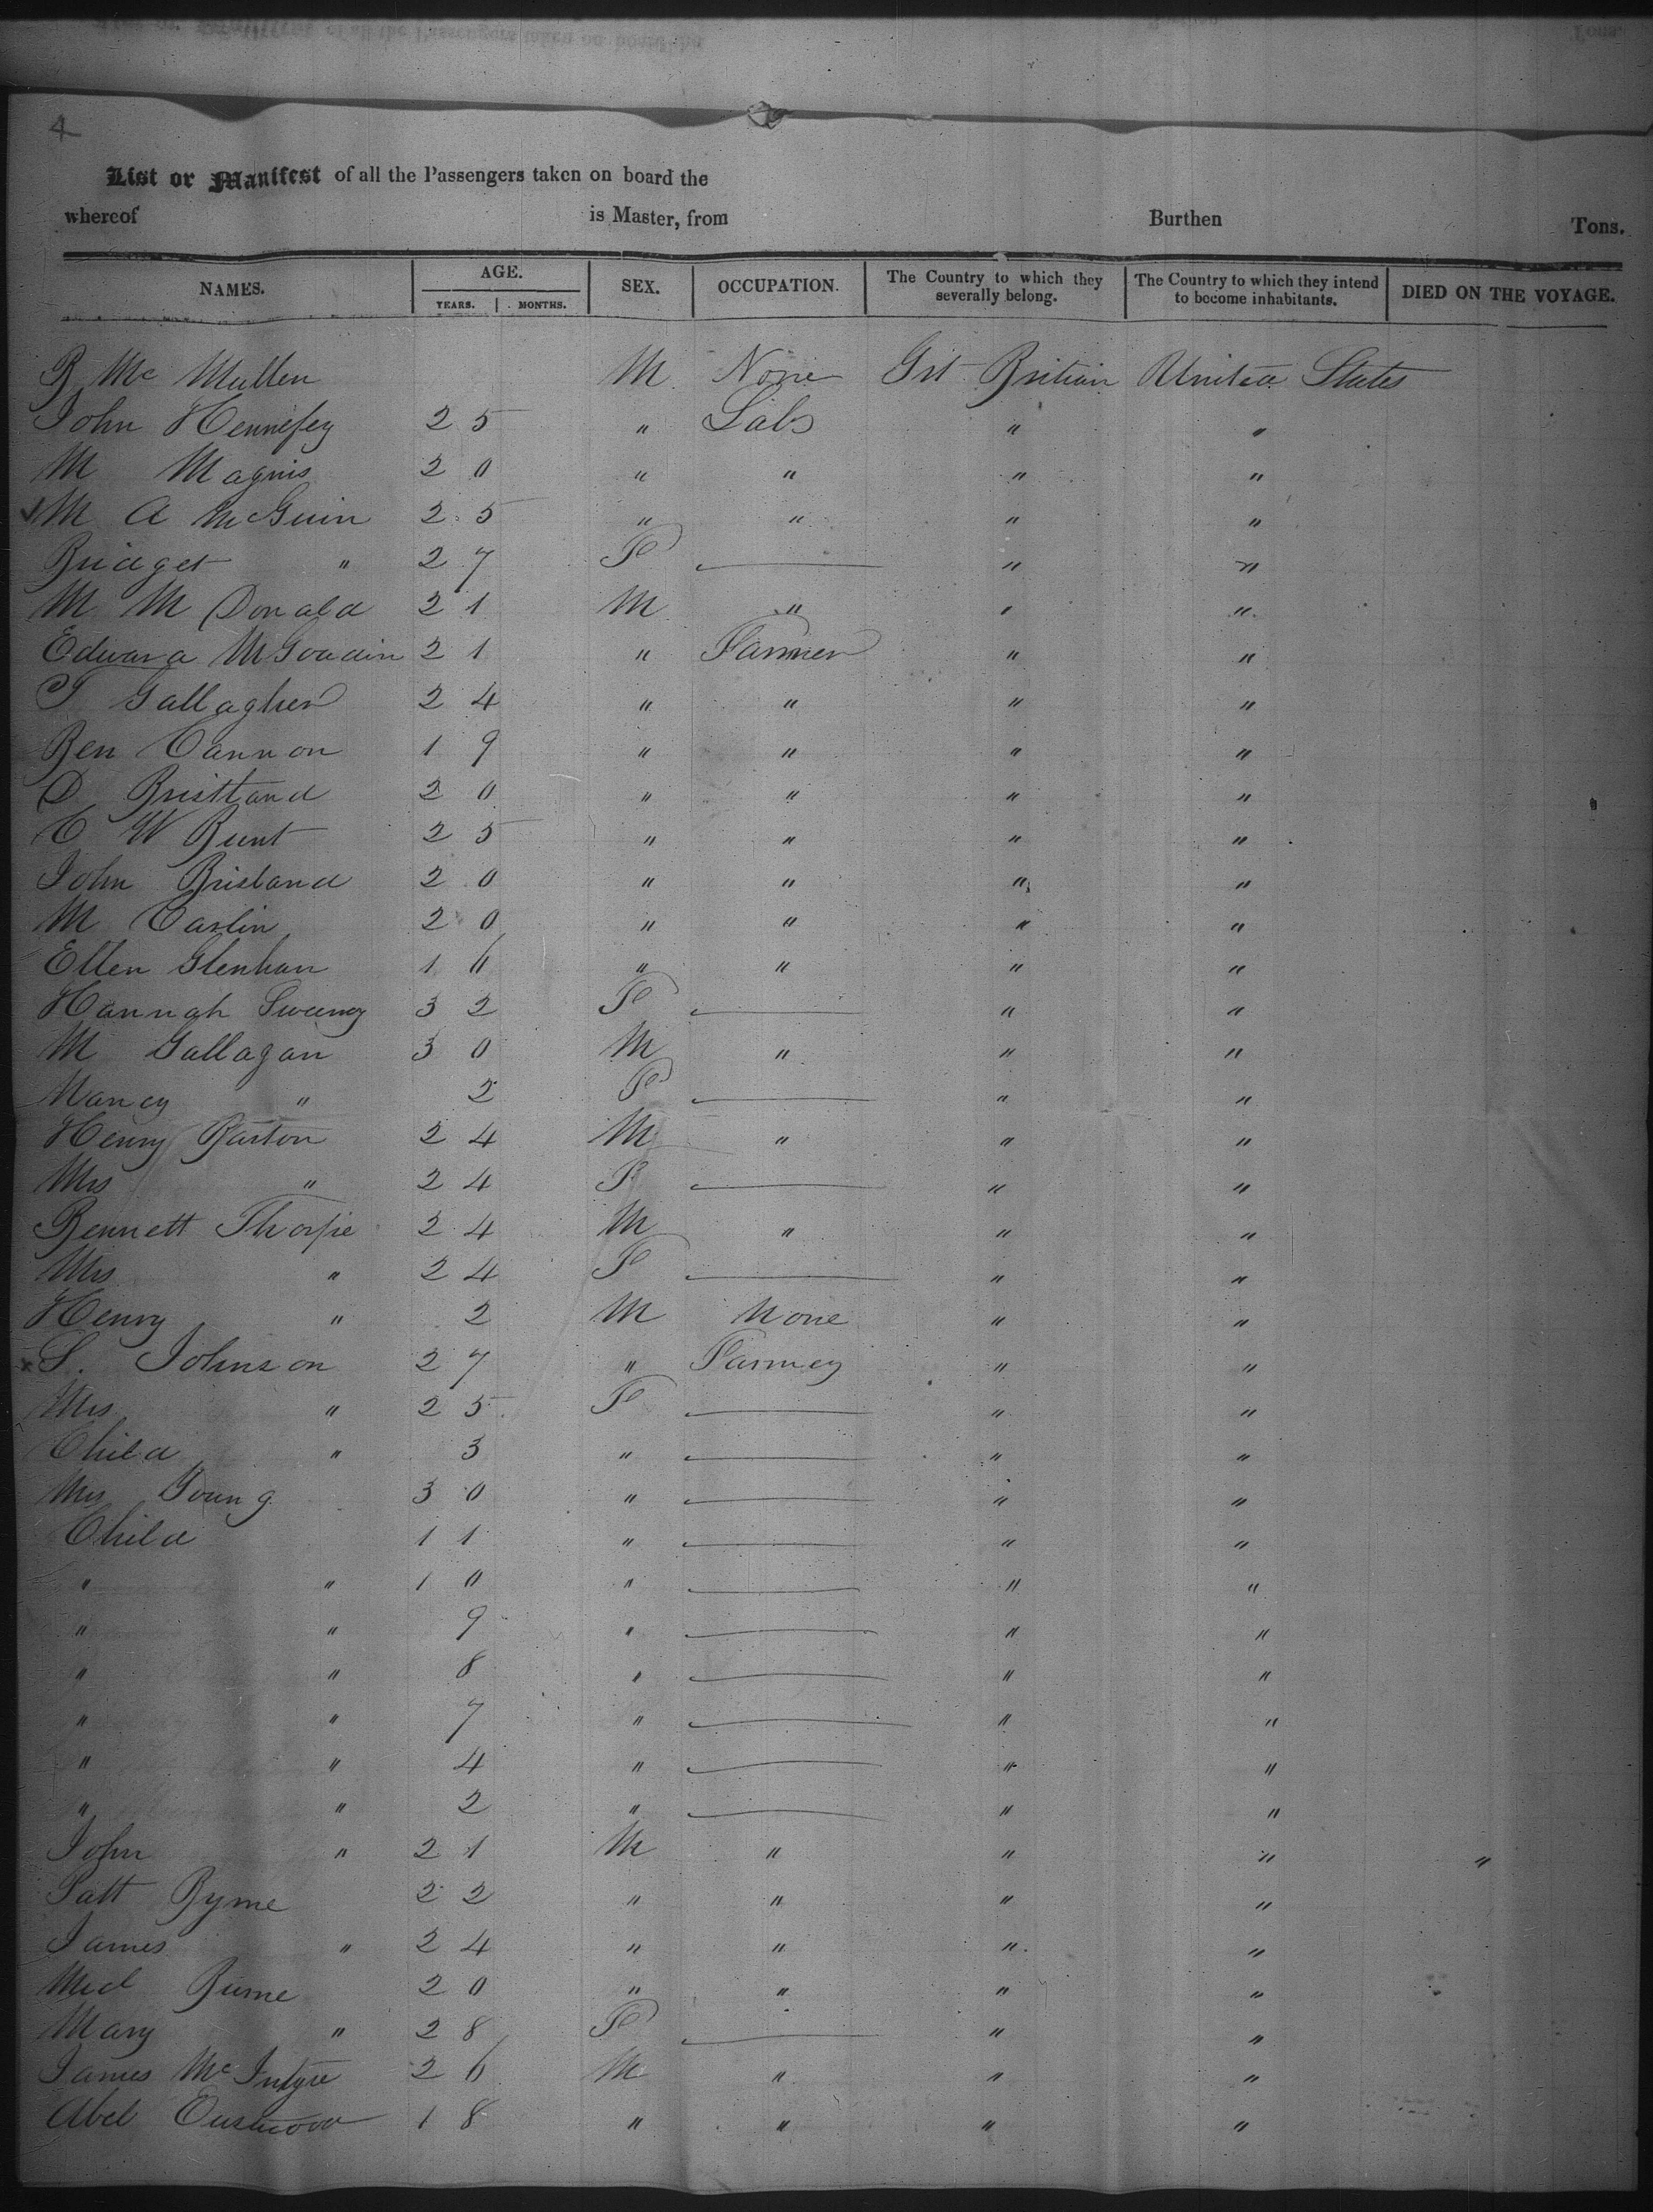 4
List or Manifest of all the Passengers taken on board the
whereof is Master, from Burthen Tons.
NAMES. AGE. YEARS. MONTHS. SEX. OCCUPATION. The Country to which they severally belong. The Country to which they intend to become inhabitants. DIED ON THE VOYAGE.
B Mc Mullen M None Grt Britian United States
John Hennesey 25 " Lab " "
M Magnis 20 " " " "
M A McGuin 25 " " " "
Bridget " 27 F — " "
M Mc Donald 21 M " " "
Edward 21 " Farmer " "
T Gallagher 24 " " " "
Ben Cannon 19 " " " "
D 20 " " " "
C W Bunt 25 " " " "
John Brisland 20 " " " "
M Carlin 20 " " " "
Ellen Glenhan 16 " " " "
Hannah Sweeney 32 F — " "
M Gallagan 30 M " " "
Nancy " 2 F — " "
Henry Barton 24 M " " "
Mrs " 24 F — " "
Bennett Thorpe 24 M " " "
Mrs " 24 F — " "
Henry " 2 M None " "
S. Johnson 27 " Farmer " "
Mrs " 25 F — " "
Child " 3 " — " "
Mrs Young 30 " — " "
Child 11 " — " "
" " 10 " — " "
" " 9 " — " "
" " 8 " — " "
" " 7 " — " "
" " 4 " — " "
" " 2 " — " "
John " 21 M " " " "
Patt Byrne 22 " " " "
James " 24 " " " "
Micl Burne 20 " " " "
Mary " 28 F — " "
James Mc Intyre 26 M " " "
Abel Eastwood 18 " " " "